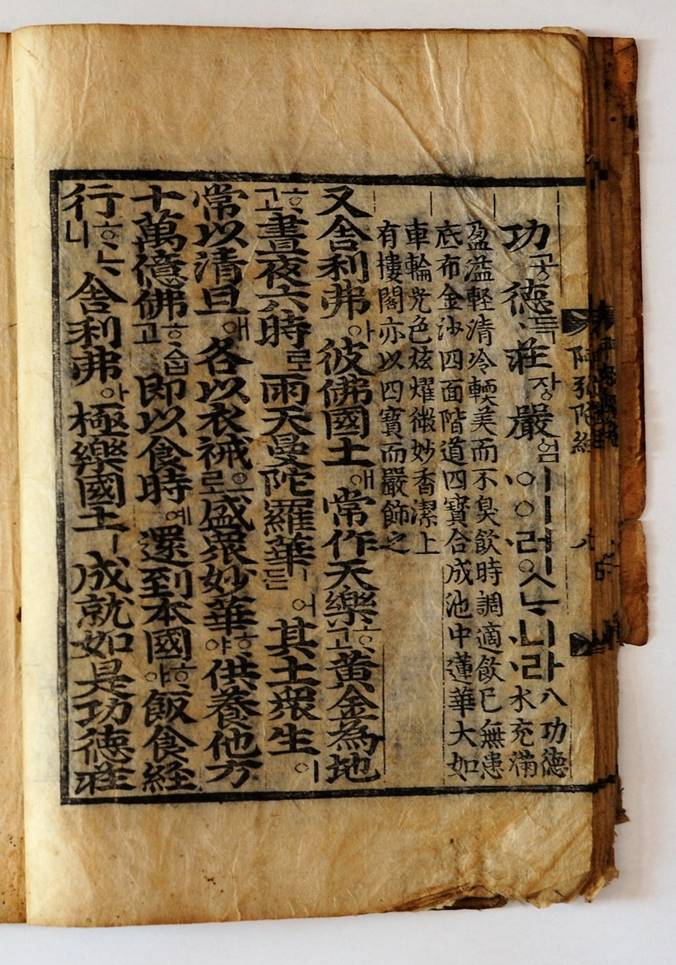 阿弥陀経
功공德득莊장嚴엄이이러잇ᄂᆞ니라八功德
水充滿
盈溢輕清冷輭美而不臭飲時調適飲已無患
底布金沙四面階道四寶合成池中蓮華大如
車輪光色炫燿微妙香潔上
有樓閣亦以四寶而嚴飾之
又舍利弗아彼佛國土애常作天樂ᄒᆞ고黃金為地
ᄒᆞ고晝夜六時로雨天曼陀羅華ㅣ어든其土眾生이
常以清旦애各以衣裓으로盛眾妙華ᄒᆞ야供養他方
十萬億佛ᄒᆞᅀᆞᆸ고即以食時예還到本國ᄒᆞ야飯食経
行ᄒᆞᄂᆞ니舍利弗아極樂國土ㅣ成就如是功德莊